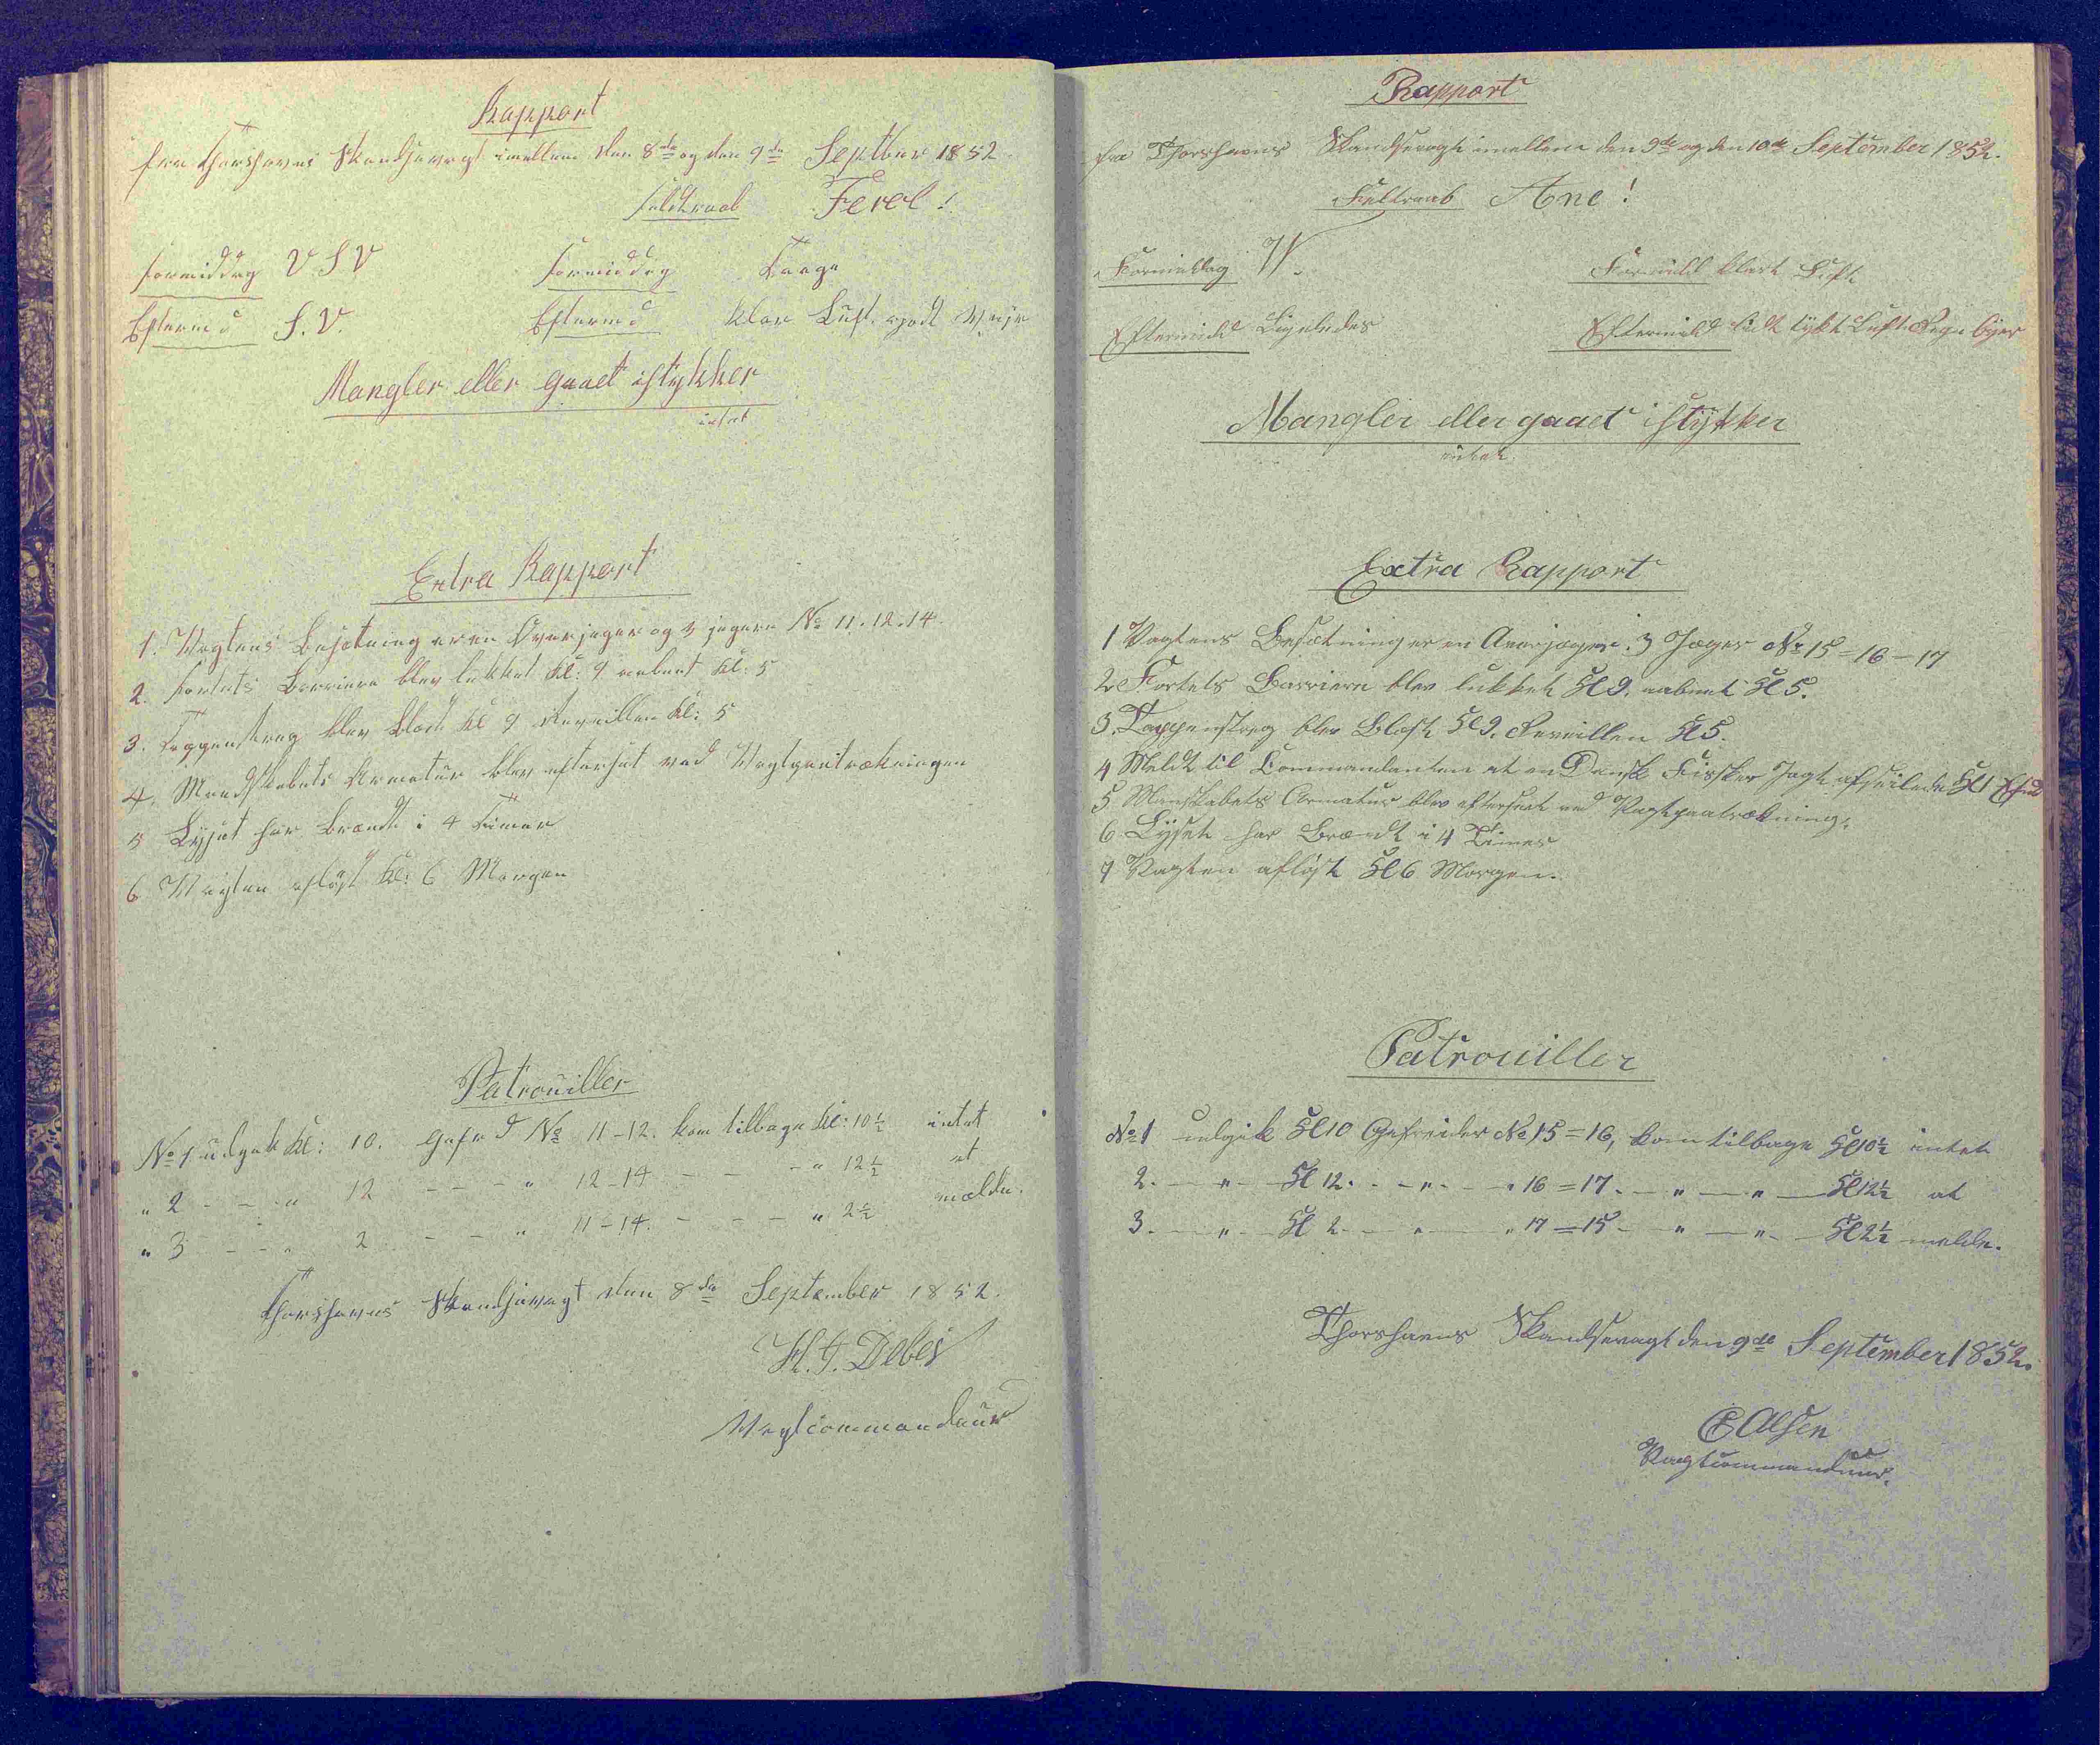 Rapport
fra Thorshavns Skandsevagt imellem den 8de og den 9de Septbr 1852.
Feldtraab Ferol!
Formiddag V S V Formiddag Taage
Eftermd S. V. Eftermd klar Luft godt Vejr
Mangler eller gaaet istykker
intet
Extra Rapport
1. Vagtens Besætning er en Overjæger og 3 jægere No 11. 12. 14.
2. Fortets Barriere blev lukket Kl: 9 aabnet Kl: 5
3. Tappenstreg blev blæst Kl 9 Reveillen Kl: 5
4. Mandskabets Armatur blev efterset ved Vagtpaatrækningen
5 Lyset har brændt i 4 Timer
6 Vagten afløst Kl: 6 Morgen
Patrouiller
No 1. udgik Kl: 10. Gefr d No 11-12. kom tilbage Kl: 10½ intet
" 2 - - " 12 - - - " 12-14 - - - " 12½ at
" 3 - - " 2 - - " 11-14. - - - " 2½ melde.
Thorshavns Skandsevagt den 8de September 1852.
H. J. Debes
Vagtcommandeur
Rapport
fra Thorshavns Skandsevagt imellem den 9de og den 10de September 1852.
Feltraab Ane!
Formiddag V. Formidd klart Luft
Eftermidd Ligeledes Eftermidd lidt tykt Luft Regn byer
Mangler eller gaaet istykker
intet.
Extra Rapport
1 Vagtens Besætning er en Overjæger. 3 Jæger No 15=16-17
2 Fortets Barriere blev lukket Kl 9. aabnet Kl 5.
3. Tappenstreg blev Blæst Kl 9. Reveillen Kl 5.
4 Meldt til Commandanten at en Dansk Fisker Jagt afseilede Kl 1 Efmd
5 Manskabets Armatur blev efterseet ved Vagtpaatrækning.
6 Lyset har Brændt i 4 Timer
7 Vagten afløst Kl 6 Morgen.
Patrouiller
No 1 udgik Kl 10 Gefreider No 15=16, kom tilbage Kl 10½ intet
2. - " - Kl 12. - " - " 16=17. - " - " - Kl 12½ at
3. - " - Kl 2 - " - " 17=15 - " - " - Kl 2½ melde.
Thorshavns Skandsevagt den 9de September 1852.
E Olsen
Vagtcommandeur.